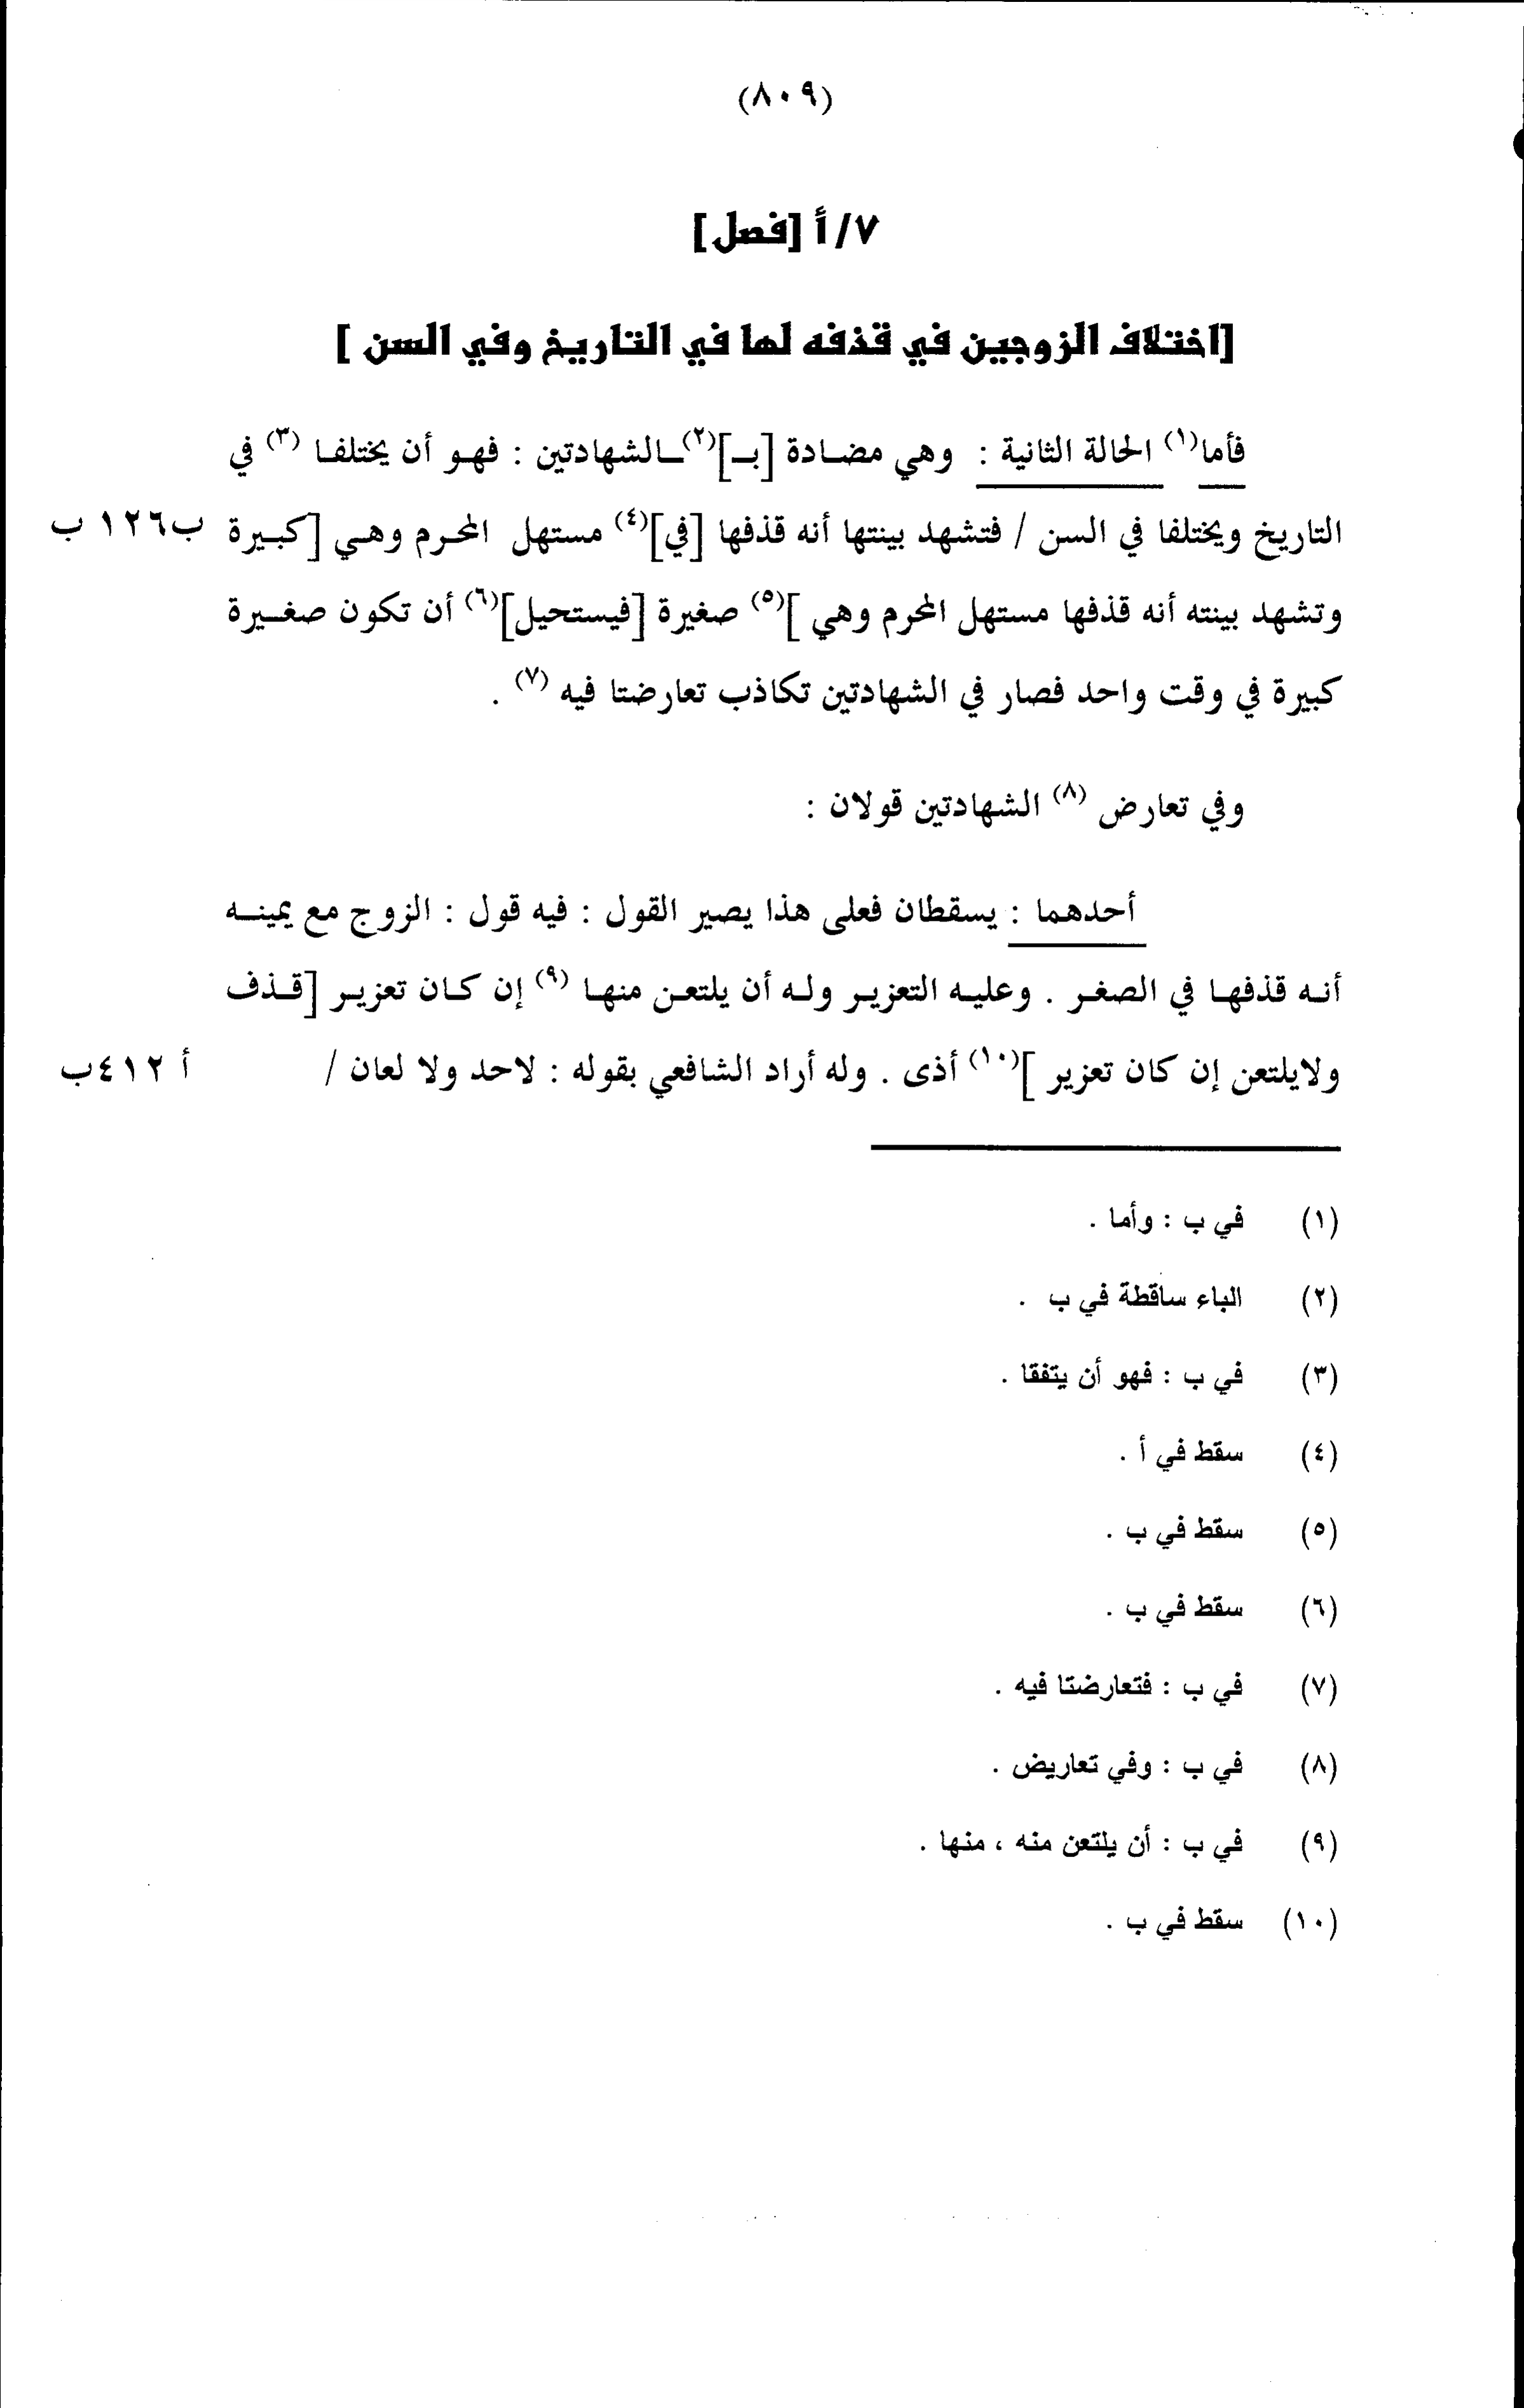 (٨٠٩)
٧/أ [فصل]
[اختلاف الزوجين في قذفه لها في التاريخ وفي السن ]
فأما(١) الحالة الثانية : وهي مضادة [بـ](٢)ـالشهادتين : فهو أن يختلفا (٣) في
التاريخ ويختلفا في السن / فتشهد بينتها أنه قذفها [في](٤) مستهل المحرم وهي [كبيرة ب١٢٦ ب
وتشهد بينته أنه قذفها مستهل المحرم وهي ](٥) صغيرة [فيستحيل](٦) أن تكون صغيرة
كبيرة في وقت واحد فصار في الشهادتين تكاذب تعارضتا فيه (٧) .
وفي تعارض (٨) الشهادتين قولان :
أحدهما : يسقطان فعلى هذا يصير القول : فيه قول : الزوج مع يمينه
أنه قذفها في الصغر . وعليه التعزير وله أن يلتعن منها (٩) إن كان تعزير [قذف
ولايلتعن إن كان تعزير ](١٠) أذى . وله أراد الشافعي بقوله : لاحد ولا لعان / أ ٤١٢ب
(١) في ب : وأما .
(٢) الباء ساقطة في ب .
(٣) في ب : فهو أن يتفقا .
(٤) سقط في أ .
(٥) سقط في ب .
(٦) سقط في ب .
(٧) في ب : فتعارضتا فيه .
(٨) في ب : وفي تعاريض .
(٩) في ب : أن يلتعن منه ، منها .
(١٠) سقط في ب .